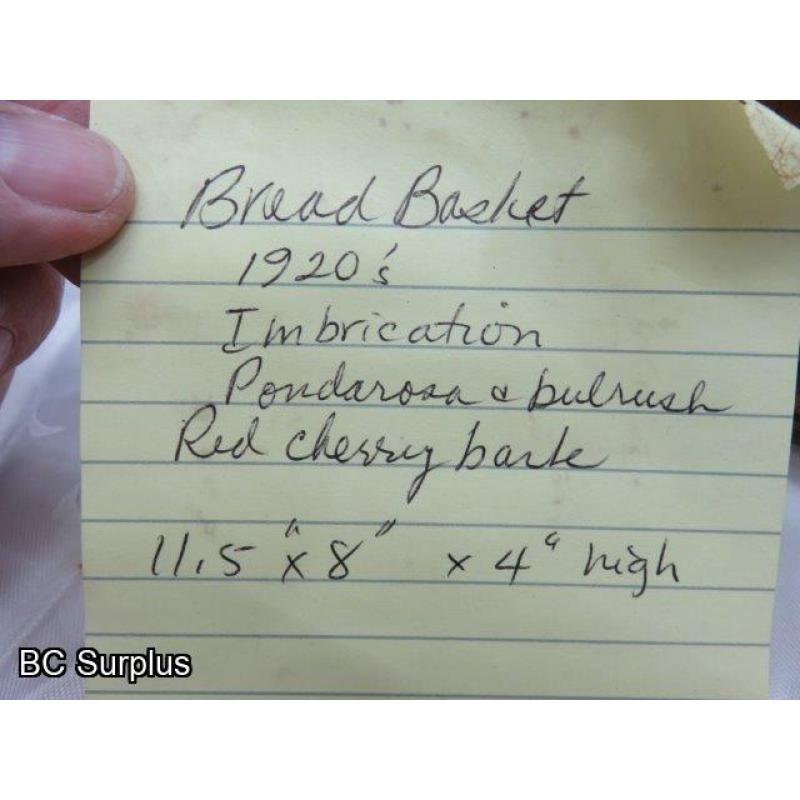 Bread Basket
1920's
Imbrication
Pondarosa & bulrush
Red cherry bark
11.5" x 8" x 4" high
BC Surplus